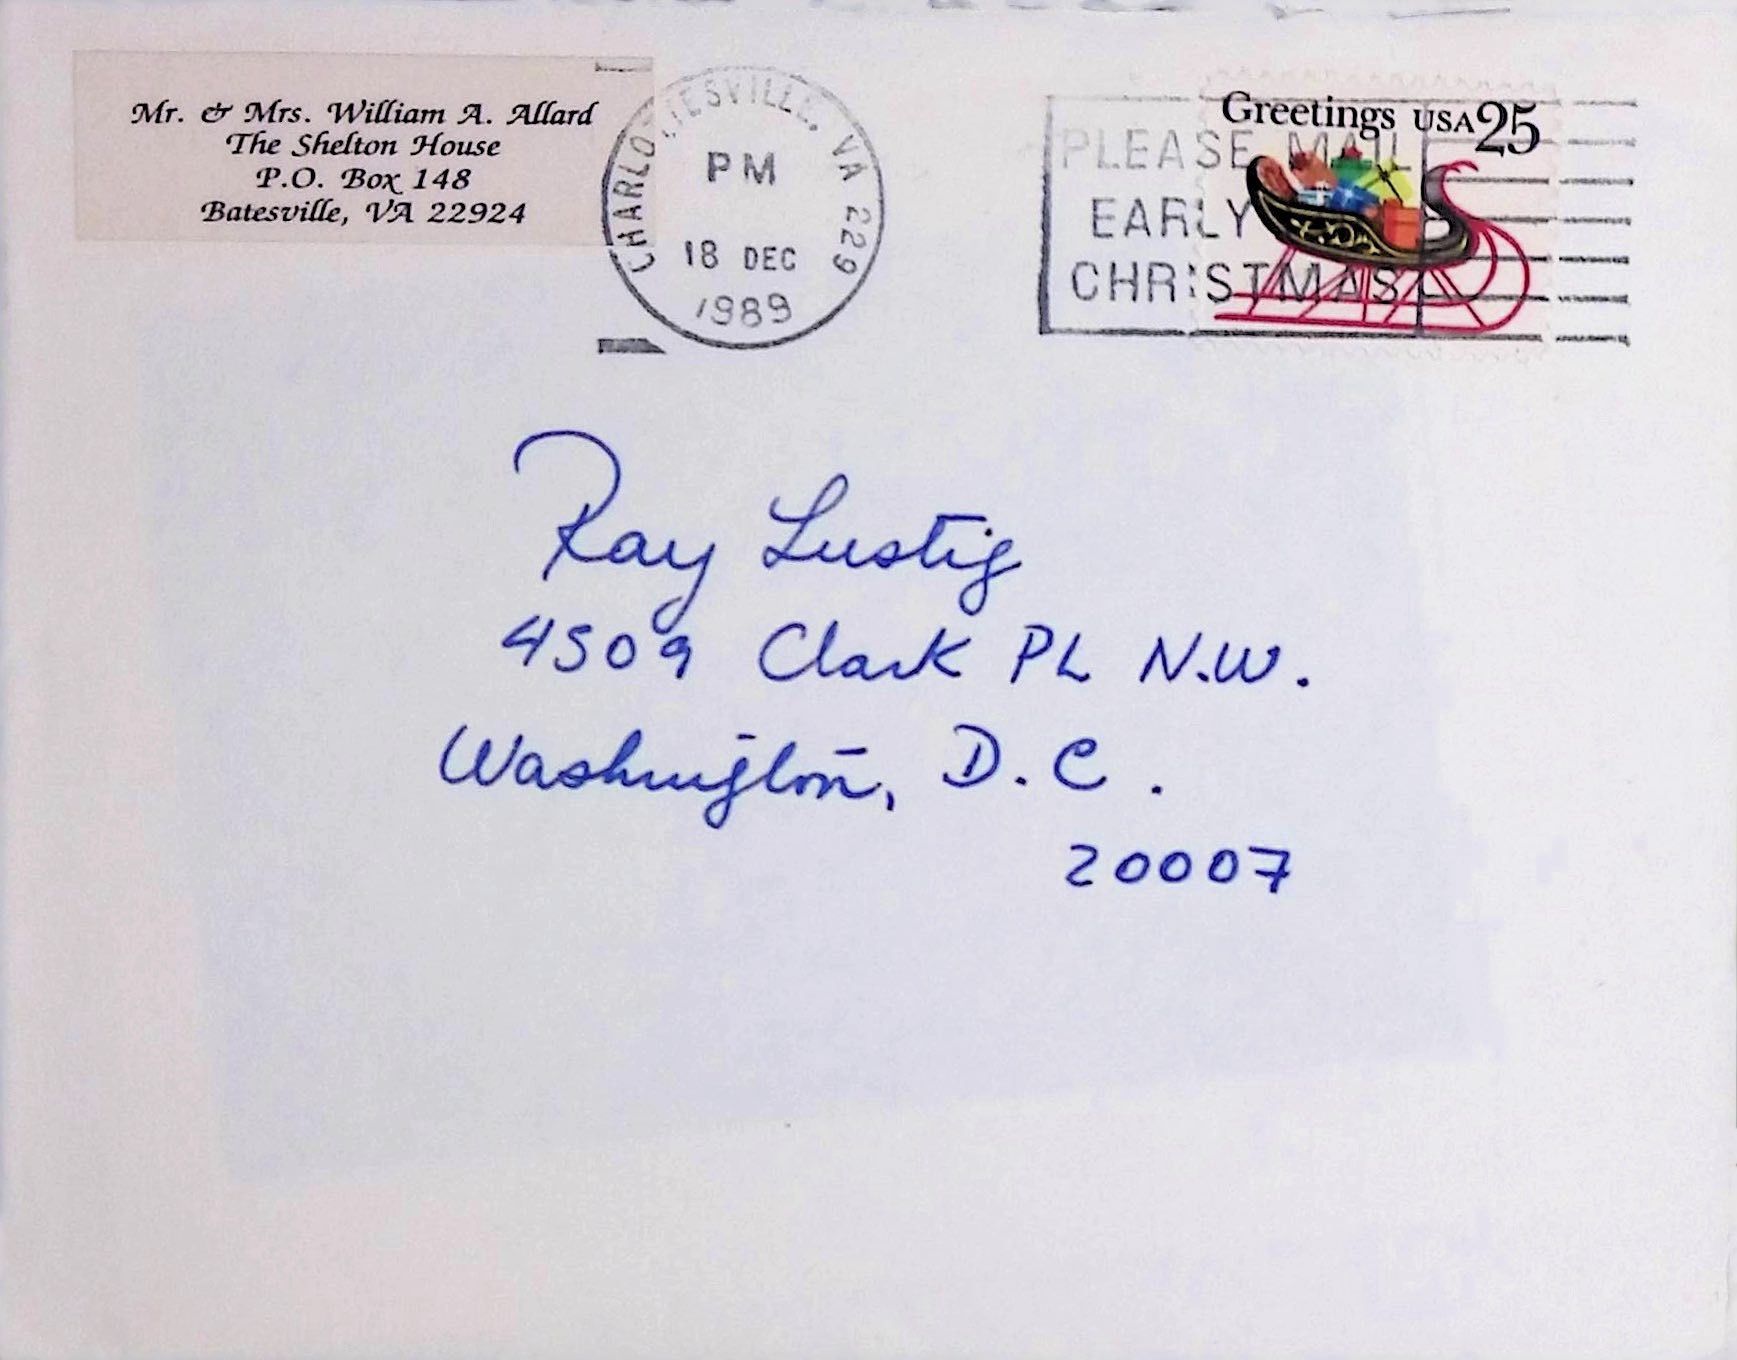 Mr. & Mrs. William A. Allard
The Shelton House
P.O. Box 148
Batesville, VA 22924
CHARLOTTESVILLE, VA 229
PM
18 DEC
1989
PLEASE MAIL
EARLY
CHRISTMAS
Greetings USA 25
Ray Lustig
4509 Clark PL N.W.
Washington, D.C.
20007